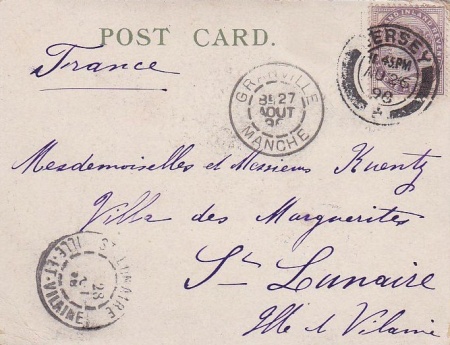 POST CARD.
France
JERSEY
AU 26
98
GRANVILLE
27
AOUT
MANCHE
Mesdemoiselles et Messieurs Kuentz
Villa des Marguerites
St Lunaire
Ille et Vilaine
ST LUNAIRE
28
ILLE-ET-VILAINE